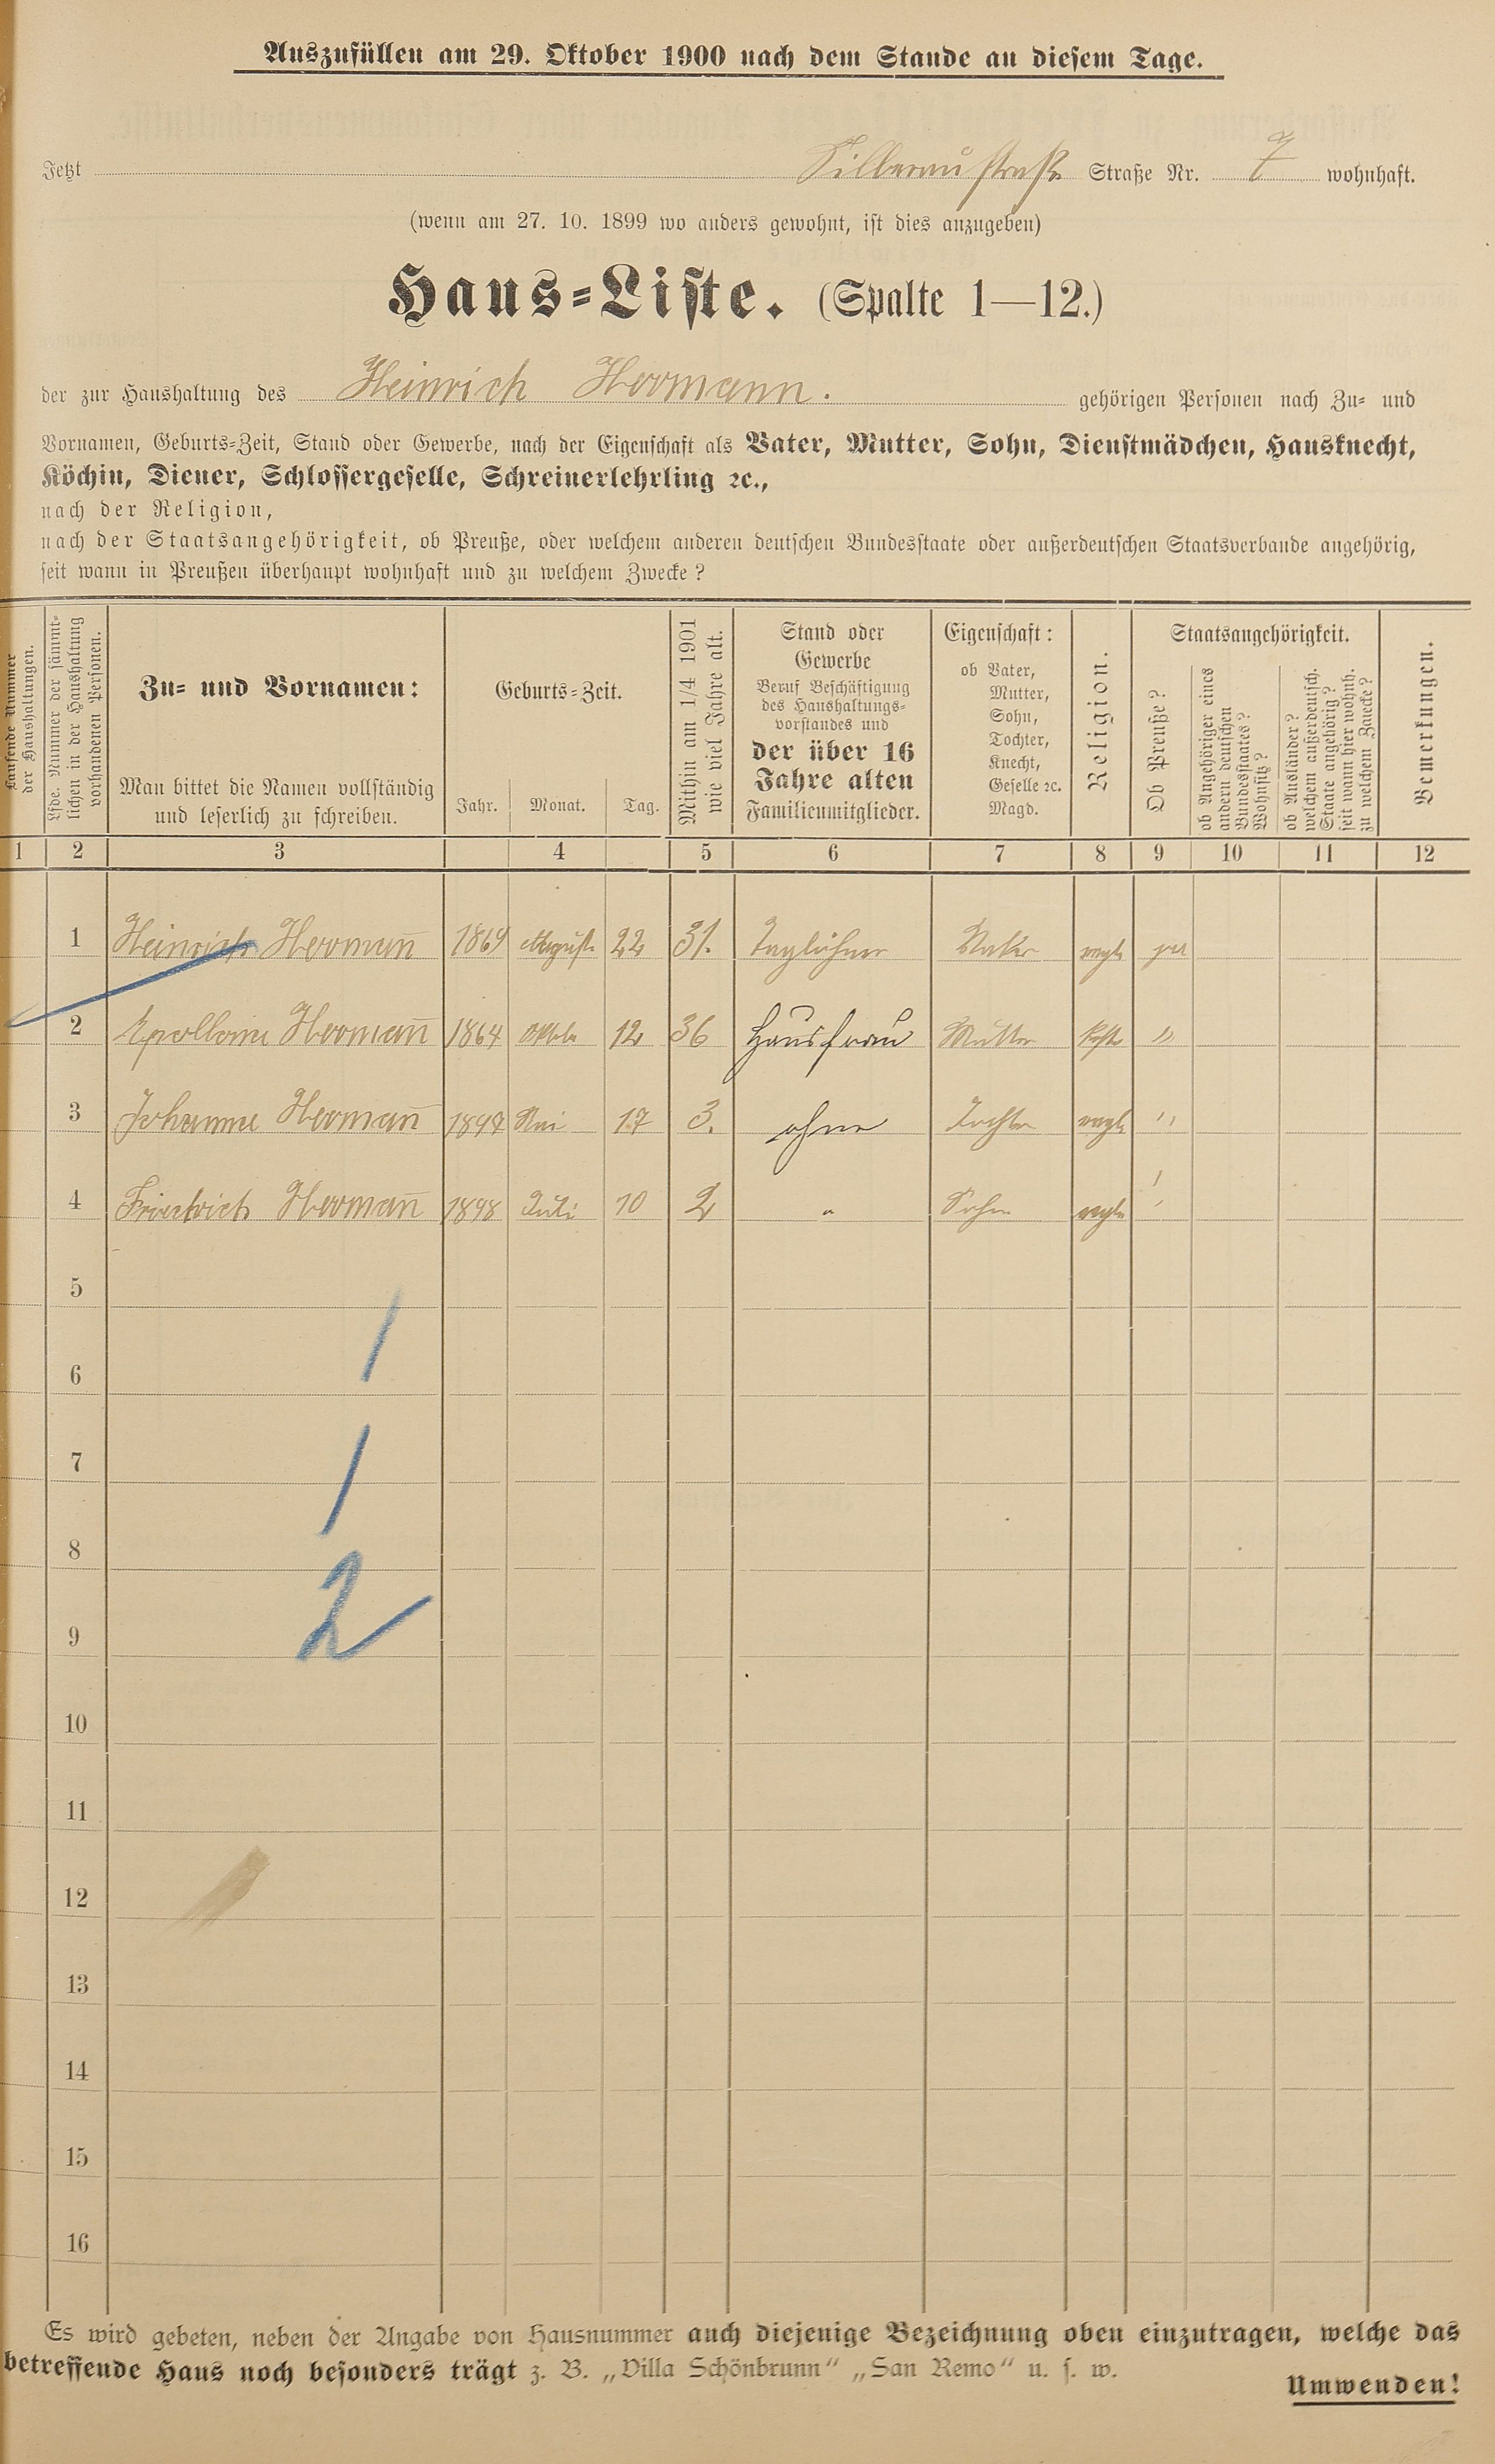 Auszufüllen am 29. Oktober 1900 nach dem Stande an diesem Tage.
Jetzt Silberaustraße Straße Nr. 7 wohnhaft.
(wenn am 27. 10. 1899 wo anders gewohnt, ist dies anzugeben)
Haus-Liste. (Spalte 1—12.)
der zur Haushaltung des Heinrich Hermann. gehörigen Personen nach Zu- und
Vornamen, Geburts-Zeit, Stand oder Gewerbe, nach der Eigenschaft als Vater, Mutter, Sohn, Dienstmädchen, Hausknecht,
Köchin, Diener, Schlossergeselle, Schreinerlehrling ꝛc.,
nach der Religion,
nach der Staatsangehörigkeit, ob Preuße, oder welchem anderen deutschen Bundesstaate oder außerdeutschen Staatsverbande angehörig,
seit wann in Preußen überhaupt wohnhaft und zu welchem Zwecke?
Laufende Nummer der Haushaltungen.
Lfde. Nummer der sämmtlichen in der Haushaltung vorhandenen Personen.
Zu- und Vornamen:
Man bittet die Namen vollständig
und leserlich zu schreiben.
Geburts-Zeit.
Jahr. Monat. Tag.
Mithin am 1/4 1901 wie viel Jahre alt.
Stand oder
Gewerbe
Beruf Beschäftigung
des Haushaltungs-
vorstandes und
der über 16
Jahre alten
Familienmitglieder.
Eigenschaft:
ob Vater,
Mutter,
Sohn,
Tochter,
Knecht,
Geselle ꝛc.
Magd.
Religion.
Staatsangehörigkeit.
Ob Preuße?
ob Angehöriger eines andern deutschen Bundesstaates? Wohnsitz?
ob Ausländer? welchem außerdeutsch. Staate angehörig? seit wann hier wohnh. zu welchem Zwecke?
Bemerkungen.
1 2 3 4 5 6 7 8 9 10 11 12
1 Heinrich Herman̄ 1869 August 22 31. Taglöhner Vater evgl. ja
2 Herman̄ 1864 Oktob 12 36 Hausfrau Mutter Kath "
3 Johanne Herman̄ 1897 Mai 17 3. ohne Tochter evgl. "
4 Friedrich Herman̄ 1898 Juli 10 2 " Sohn evgl. "
5
6 1
7 1
8
9 2
10
11
12
13
14
15
16
Es wird gebeten, neben der Angabe von Hausnummer auch diejenige Bezeichnung oben einzutragen, welche das
betreffende Haus noch besonders trägt z. B. „Villa Schönbrunn“ „San Remo“ u. s. w.
Umwenden!